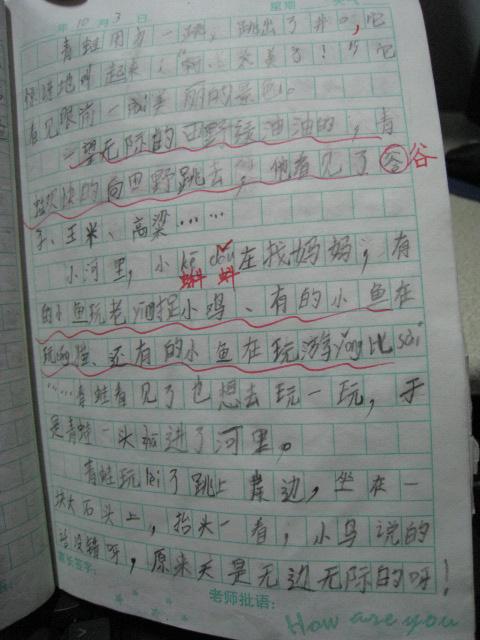 年10月3日 星期 天气
青蛙用力一跳，跳出了井口，它
惊讶地叫起来：“啊！太美了！”它
看见眼前一片美丽的景色。
一望无际的田野绿油油的，青
蛙欢快的向田野跳去，他看见了谷谷
子、玉米、高粱……
小河里，小蝌dǒu蝌蚪在找妈妈，有
的小鱼玩老yīng捉小鸡、有的小鱼在
玩、还有的小鱼在玩游yǒng比sài
……青蛙看见了也想去玩一玩，于
是青蛙一头扎进了河里。
青蛙玩lèi了跳上岸边，坐在一
块大石头上，抬头一看，小鸟说的
话没错呀，原来天是无边无际的呀！
家长签字：
老师批语：
How are you